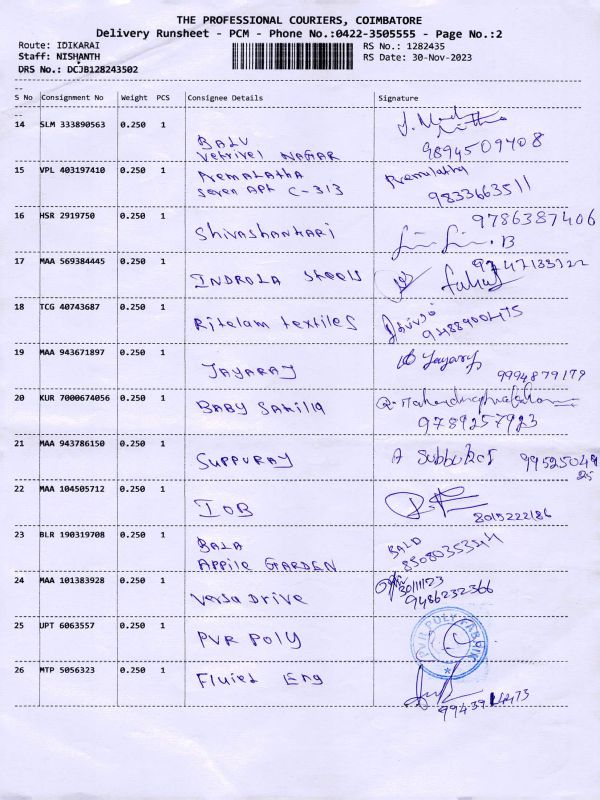 THE PROFESSIONAL COURIERS, COIMBATORE
Delivery Runsheet - PCM - Phone No.:0422-3505555 - Page No.:2
Route: IDIKARAI RS No.: 1282435
Staff: NISHANTH RS Date: 30-Nov-2023
DRS No.: DCJB128243502
S No Consignment No Weight PCS Consignee Details Signature
14 SLM 333890563 0.250 1
BALU
Vetrivel NAGAR 9894509408
15 VPL 403197410 0.250 1 PremALAthA Premalatha
Seven APt C-313 9833663511
16 HSR 2919750 0.250 1 9786387406
Shivashankari
17 MAA 569384445 0.250 1
INDROLA Steels
18 TCG 40743687 0.250 1
Ritelam textiles
19 MAA 943671897 0.250 1 Jayaraj
JAYARAJ 9994879179
20 KUR 7000674056 0.250 1
BABY SAkilla 9789257923
21 MAA 943786150 0.250 1
SUPPURAY A Subburaj 99525049
25
22 MAA 104505712 0.250 1
IOB 8015222186
23 BLR 190319708 0.250 1
BALA
Appile GARDEN
24 MAA 101383928 0.250 1 30/11/23
Versa Drive 9486232366
25 UPT 6063557 0.250 1
PVR POLY PVR POLY FABRIK
26 MTP 5056323 0.250 1
Fluied Eng